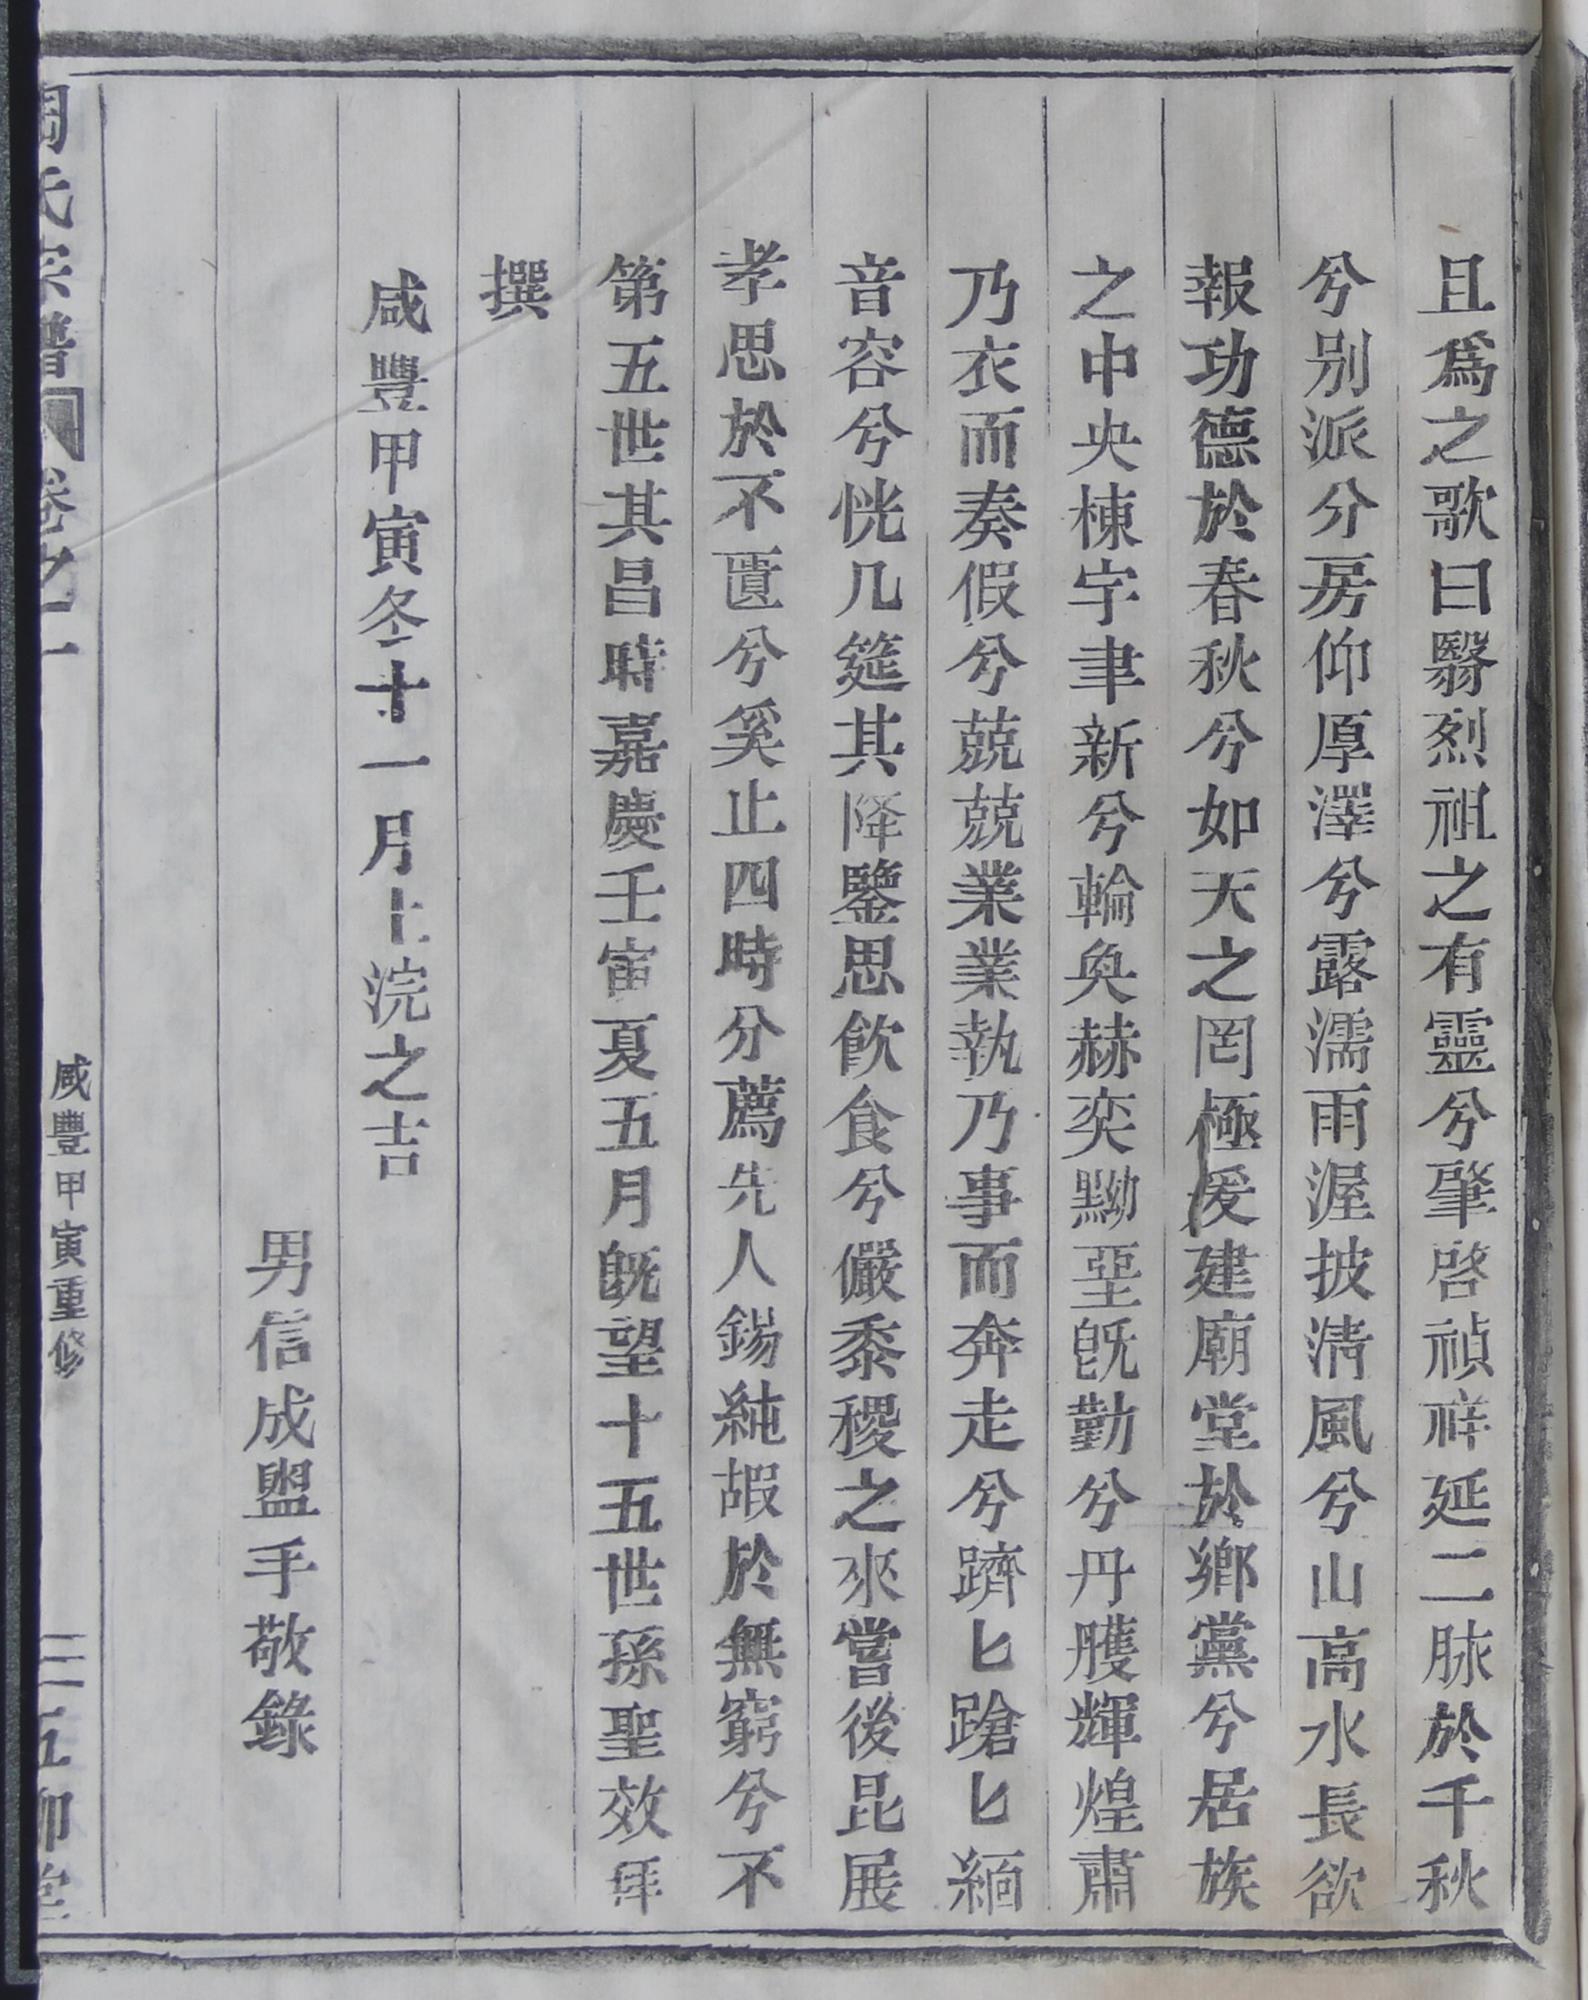 且爲之歌曰翳烈祖之有靈兮肇啓禎祥延二脉於千秋
兮别派分房仰厚澤兮露濡雨渥披淸風兮山高水長欲
報功德於春秋兮如天之罔極爰建廟堂於鄉黨兮居族
之中央棟宇聿新兮輪奐赫奕黝堊旣勤兮丹雘輝煌肅
乃衣而奏假兮兢兢業業執乃事而奔走兮躋匕蹌匕緬
音容兮恍几筵其降鑒思飲食兮儼黍稷之來嘗後昆展
孝思於不匱兮奚止四時分薦先人錫純嘏於無窮兮不
第五世其昌時嘉慶壬寅夏五月旣望十五世孫聖效拜
撰
咸豐甲寅冬十一月上浣之吉
男信成盥手敬錄
周氏宗譜 卷之一 咸豐甲寅重修 堂